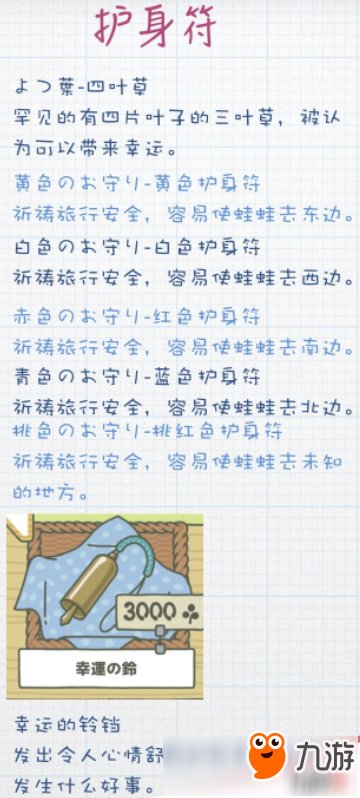 护身符
よつ葉-四叶草
罕见的有四片叶子的三叶草，被认
为可以带来幸运。
黄色のお守り-黄色护身符
祈祷旅行安全，容易使蛙蛙去东边。
白色のお守り-白色护身符
祈祷旅行安全，容易使蛙蛙去西边。
赤色のお守り-红色护身符
祈祷旅行安全，容易使蛙蛙去南边。
青色のお守り-蓝色护身符
祈祷旅行安全，容易使蛙蛙去北边。
桃色のお守り-桃红色护身符
祈祷旅行安全，容易使蛙蛙去未知
的地方。
3000
幸運の鈴
幸运的铃铛
发出令人心情舒
发生什么好事。
九游